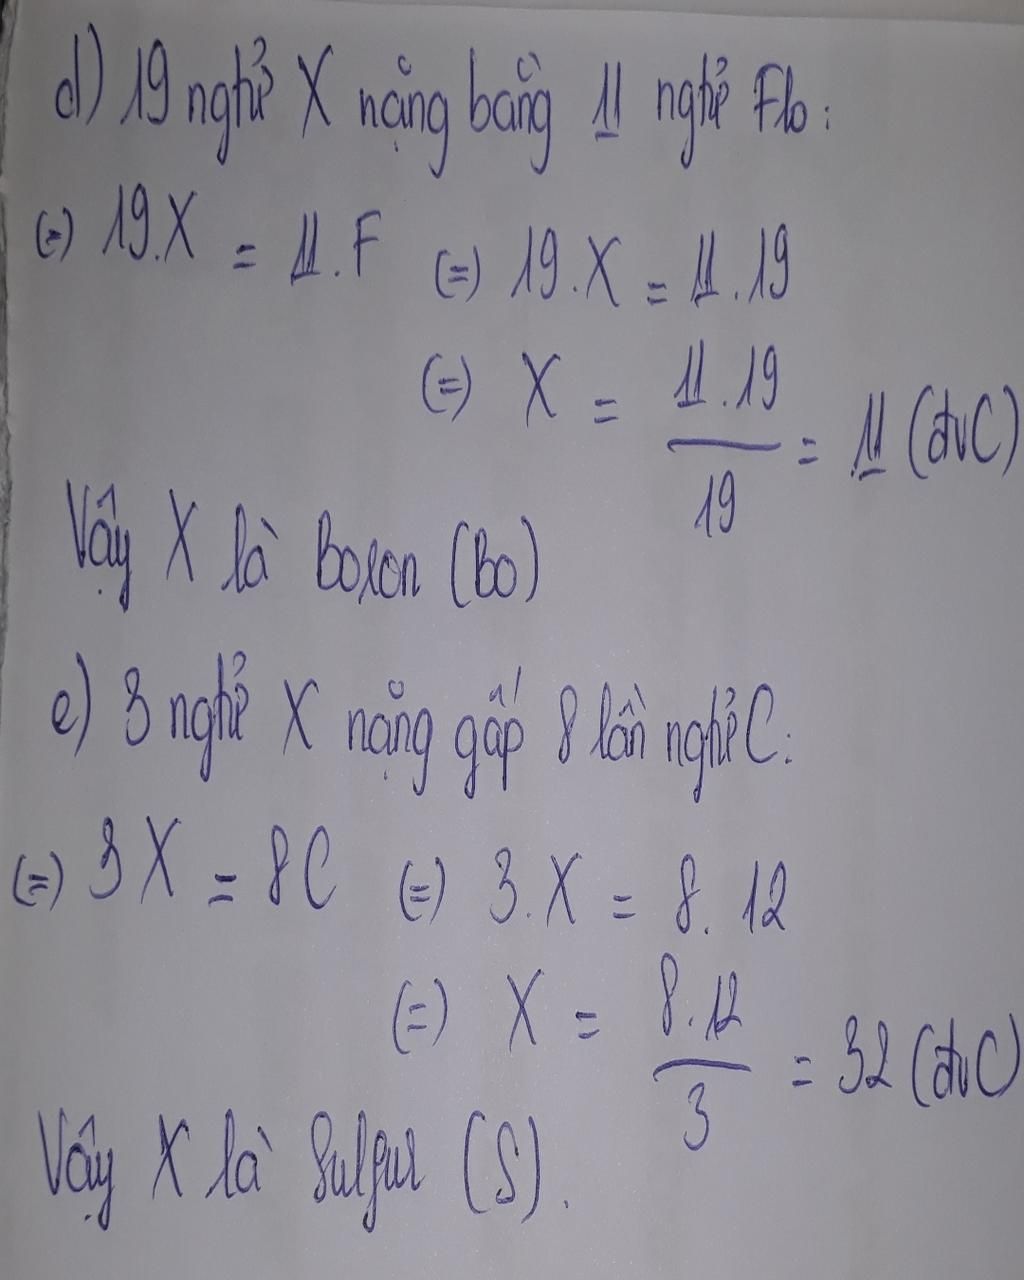 d) 19 nghtử X nặng bằng 11 nghtử Flo:
(=) 19.X = 11.F (=) 19.X = 11.19
(=) X = 11.19 / 19 = 11 (đvC)
Vậy X là Boron (Bo)
e) 3 nghtử X nặng gấp 8 lần nghtử C:
(=) 3X = 8C (=) 3.X = 8.12
(=) X = 8.12 / 3 = 32 (đvC)
Vậy X là Sulfur (S).